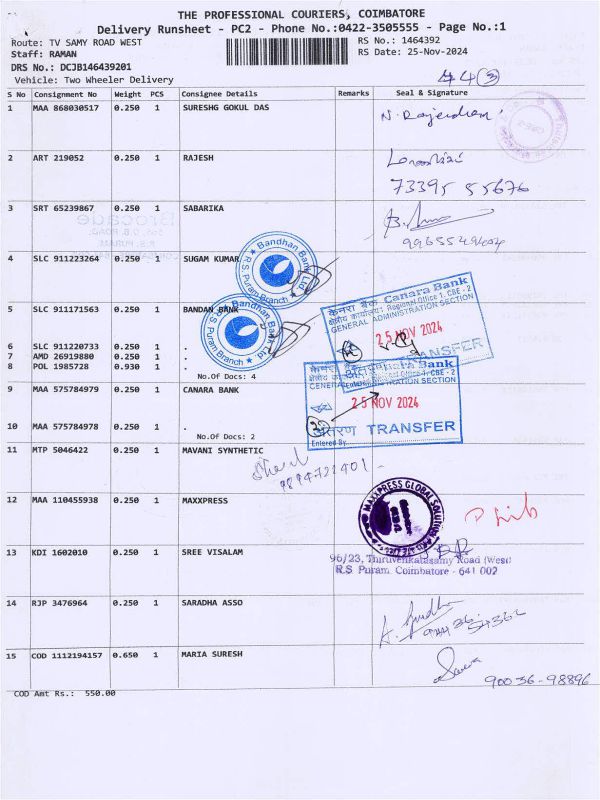 THE PROFESSIONAL COURIERS, COIMBATORE
Delivery Runsheet - PC2 - Phone No.:0422-3505555 - Page No.:1
Route: TV SAMY ROAD WEST
RS No.: 1464392
Staff: RAMAN
RS Date: 25-Nov-2024
DRS No.: DCJB146439201
Vehicle: Two Wheeler Delivery
S No Consignment No Weight PCS Consignee Details Remarks Seal & Signature
1 MAA 868030517 0.250 1 SURESHG GOKUL DAS
2 ART 219052 0.250 1 RAJESH
73395 55676
3 SRT 65239867 0.250 1 SABARIKA
4 SLC 911223264 0.250 1 SUGAM KUMAR
Bandhan Bank Ltd
R.S. Puram Branch
5 SLC 911171563 0.250 1 BANDAN BANK
Bandhan Bank Ltd
R.S. Puram Branch
केनरा बैंक Canara Bank
क्षेत्रीय कार्यालय: Regional Office 1, CBE - 2
GENERAL ADMINISTRATION SECTION
25 NOV 2024
TRANSFER
6 SLC 911220733 0.250 1 .
7 AMD 26919880 0.250 1 .
8 POL 1985728 0.930 1 .
No.Of Docs: 4
9 MAA 575784979 0.250 1 CANARA BANK
केनरा बैंक Canara Bank
Regional Office 1, CBE - 2
GENERAL ADMINISTRATION SECTION
25 NOV 2024
अंतरण TRANSFER
Entered By
10 MAA 575784978 0.250 1 .
No.Of Docs: 2
11 MTP 5046422 0.250 1 MAVANI SYNTHETIC
12 MAA 110455938 0.250 1 MAXXPRESS
MAXXPRESS GLOBAL SOLUTION
13 KDI 1602010 0.250 1 SREE VISALAM
96/23, Thiruvenkatasamy Road (West)
R.S. Puram, Coimbatore - 641 002
14 RJP 3476964 0.250 1 SARADHA ASSO
15 COD 1112194157 0.650 1 MARIA SURESH
90036-98896
COD Amt Rs.: 550.00